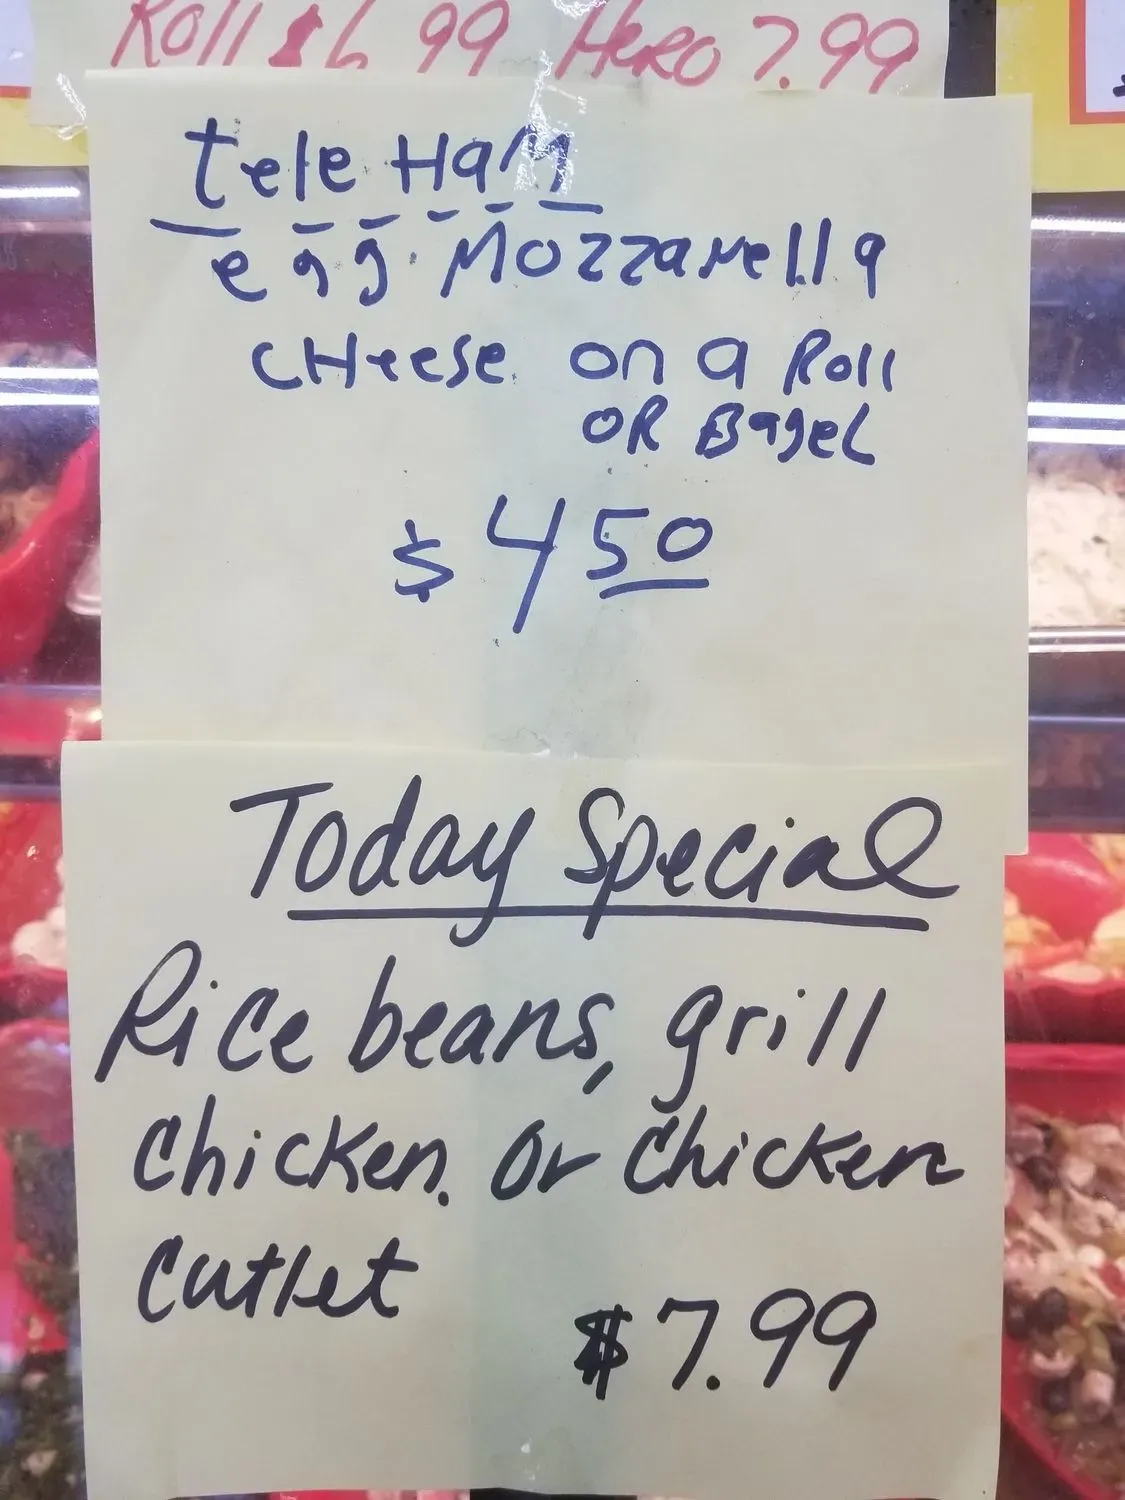 Roll $6.99 Hero 7.99
teleHaM
egg. Mozzarella
CHeese on a Roll
OR Bagel
$4 50
Today Special
Rice beans, grill
Chicken. Or Chicken
Cutlet
$7.99